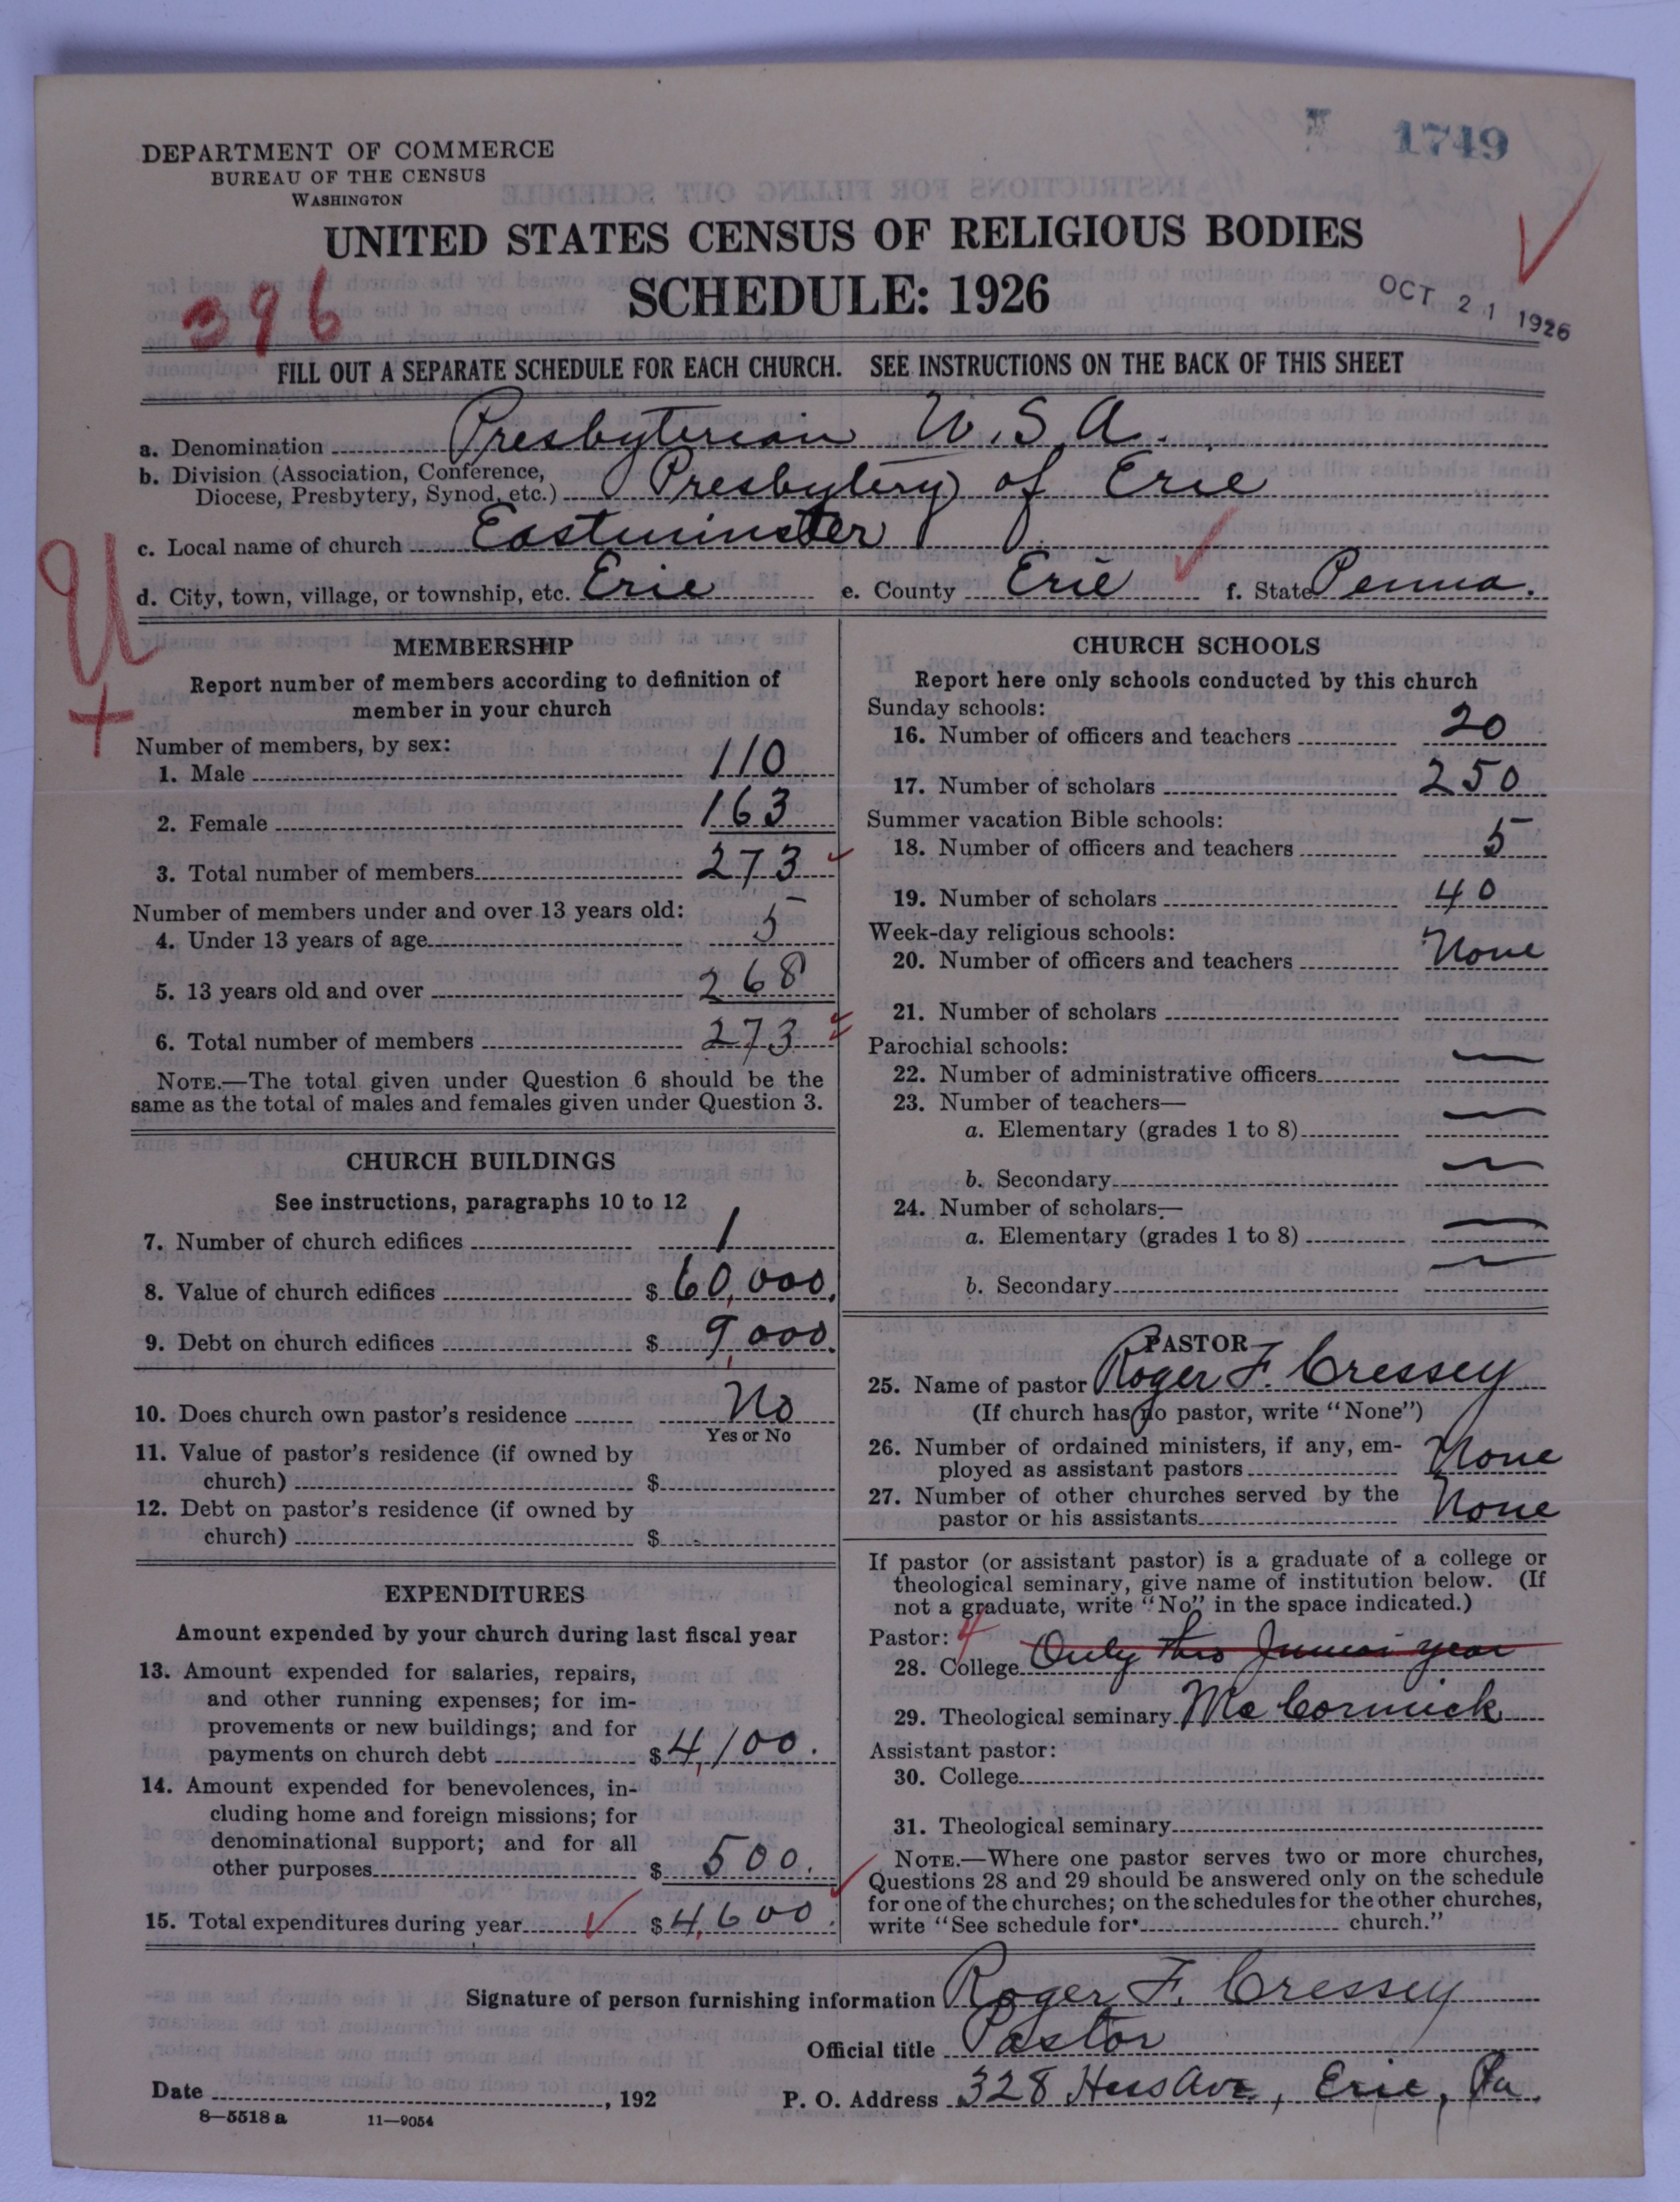 1749
DEPARTMENT OF COMMERCE
BUREAU OF THE CENSUS
WASHINGTON
UNITED STATES CENSUS OF RELIGIOUS BODIES
SCHEDULE: 1926
396
OCT 21 1926
FILL OUT A SEPARATE SCHEDULE FOR EACH CHURCH. SEE INSTRUCTIONS ON THE BACK OF THIS SHEET
a. Denomination Presbyterian U.S.A.
b. Division (Association, Conference,
Diocese, Presbytery, Synod, etc.) Presbytery of Erie
c. Local name of church Eastminster
d. City, town, village, or township, etc. Erie e. County Erie f. State Penna.
U
+
MEMBERSHIP
Report number of members according to definition of
member in your church
Number of members, by sex:
1. Male 110
2. Female 163
3. Total number of members 273
Number of members under and over 13 years old:
4. Under 13 years of age 5
5. 13 years old and over 268
6. Total number of members 273
NOTE.—The total given under Question 6 should be the
same as the total of males and females given under Question 3.
CHURCH BUILDINGS
See instructions, paragraphs 10 to 12
7. Number of church edifices 1
8. Value of church edifices $ 60,000.
9. Debt on church edifices $ 9,000.
10. Does church own pastor's residence No
Yes or No
11. Value of pastor's residence (if owned by
church) $
12. Debt on pastor's residence (if owned by
church) $
EXPENDITURES
Amount expended by your church during last fiscal year
13. Amount expended for salaries, repairs,
and other running expenses; for im-
provements or new buildings; and for
payments on church debt $ 4,100.
14. Amount expended for benevolences, in-
cluding home and foreign missions; for
denominational support; and for all
other purposes $ 500.
15. Total expenditures during year $ 4,600.
CHURCH SCHOOLS
Report here only schools conducted by this church
Sunday schools:
16. Number of officers and teachers 20
17. Number of scholars 250
Summer vacation Bible schools:
18. Number of officers and teachers 5
19. Number of scholars 40
Week-day religious schools:
20. Number of officers and teachers None
21. Number of scholars
Parochial schools:
22. Number of administrative officers —
23. Number of teachers—
a. Elementary (grades 1 to 8) —
b. Secondary —
24. Number of scholars—
a. Elementary (grades 1 to 8) —
b. Secondary —
PASTOR
25. Name of pastor Roger F. Cressey
(If church has no pastor, write "None")
26. Number of ordained ministers, if any, em-
ployed as assistant pastors None
27. Number of other churches served by the
pastor or his assistants None
If pastor (or assistant pastor) is a graduate of a college or
theological seminary, give name of institution below. (If
not a graduate, write "No" in the space indicated.)
Pastor: 4
28. College Only thro Junior year
29. Theological seminary McCormick
Assistant pastor:
30. College
31. Theological seminary
NOTE.—Where one pastor serves two or more churches,
Questions 28 and 29 should be answered only on the schedule
for one of the churches; on the schedules for the other churches,
write "See schedule for church."
Signature of person furnishing information Roger F. Cressey
Official title Pastor
Date , 192 P. O. Address 328 Hess Ave., Erie, Pa.
8—5518 a 11—9054